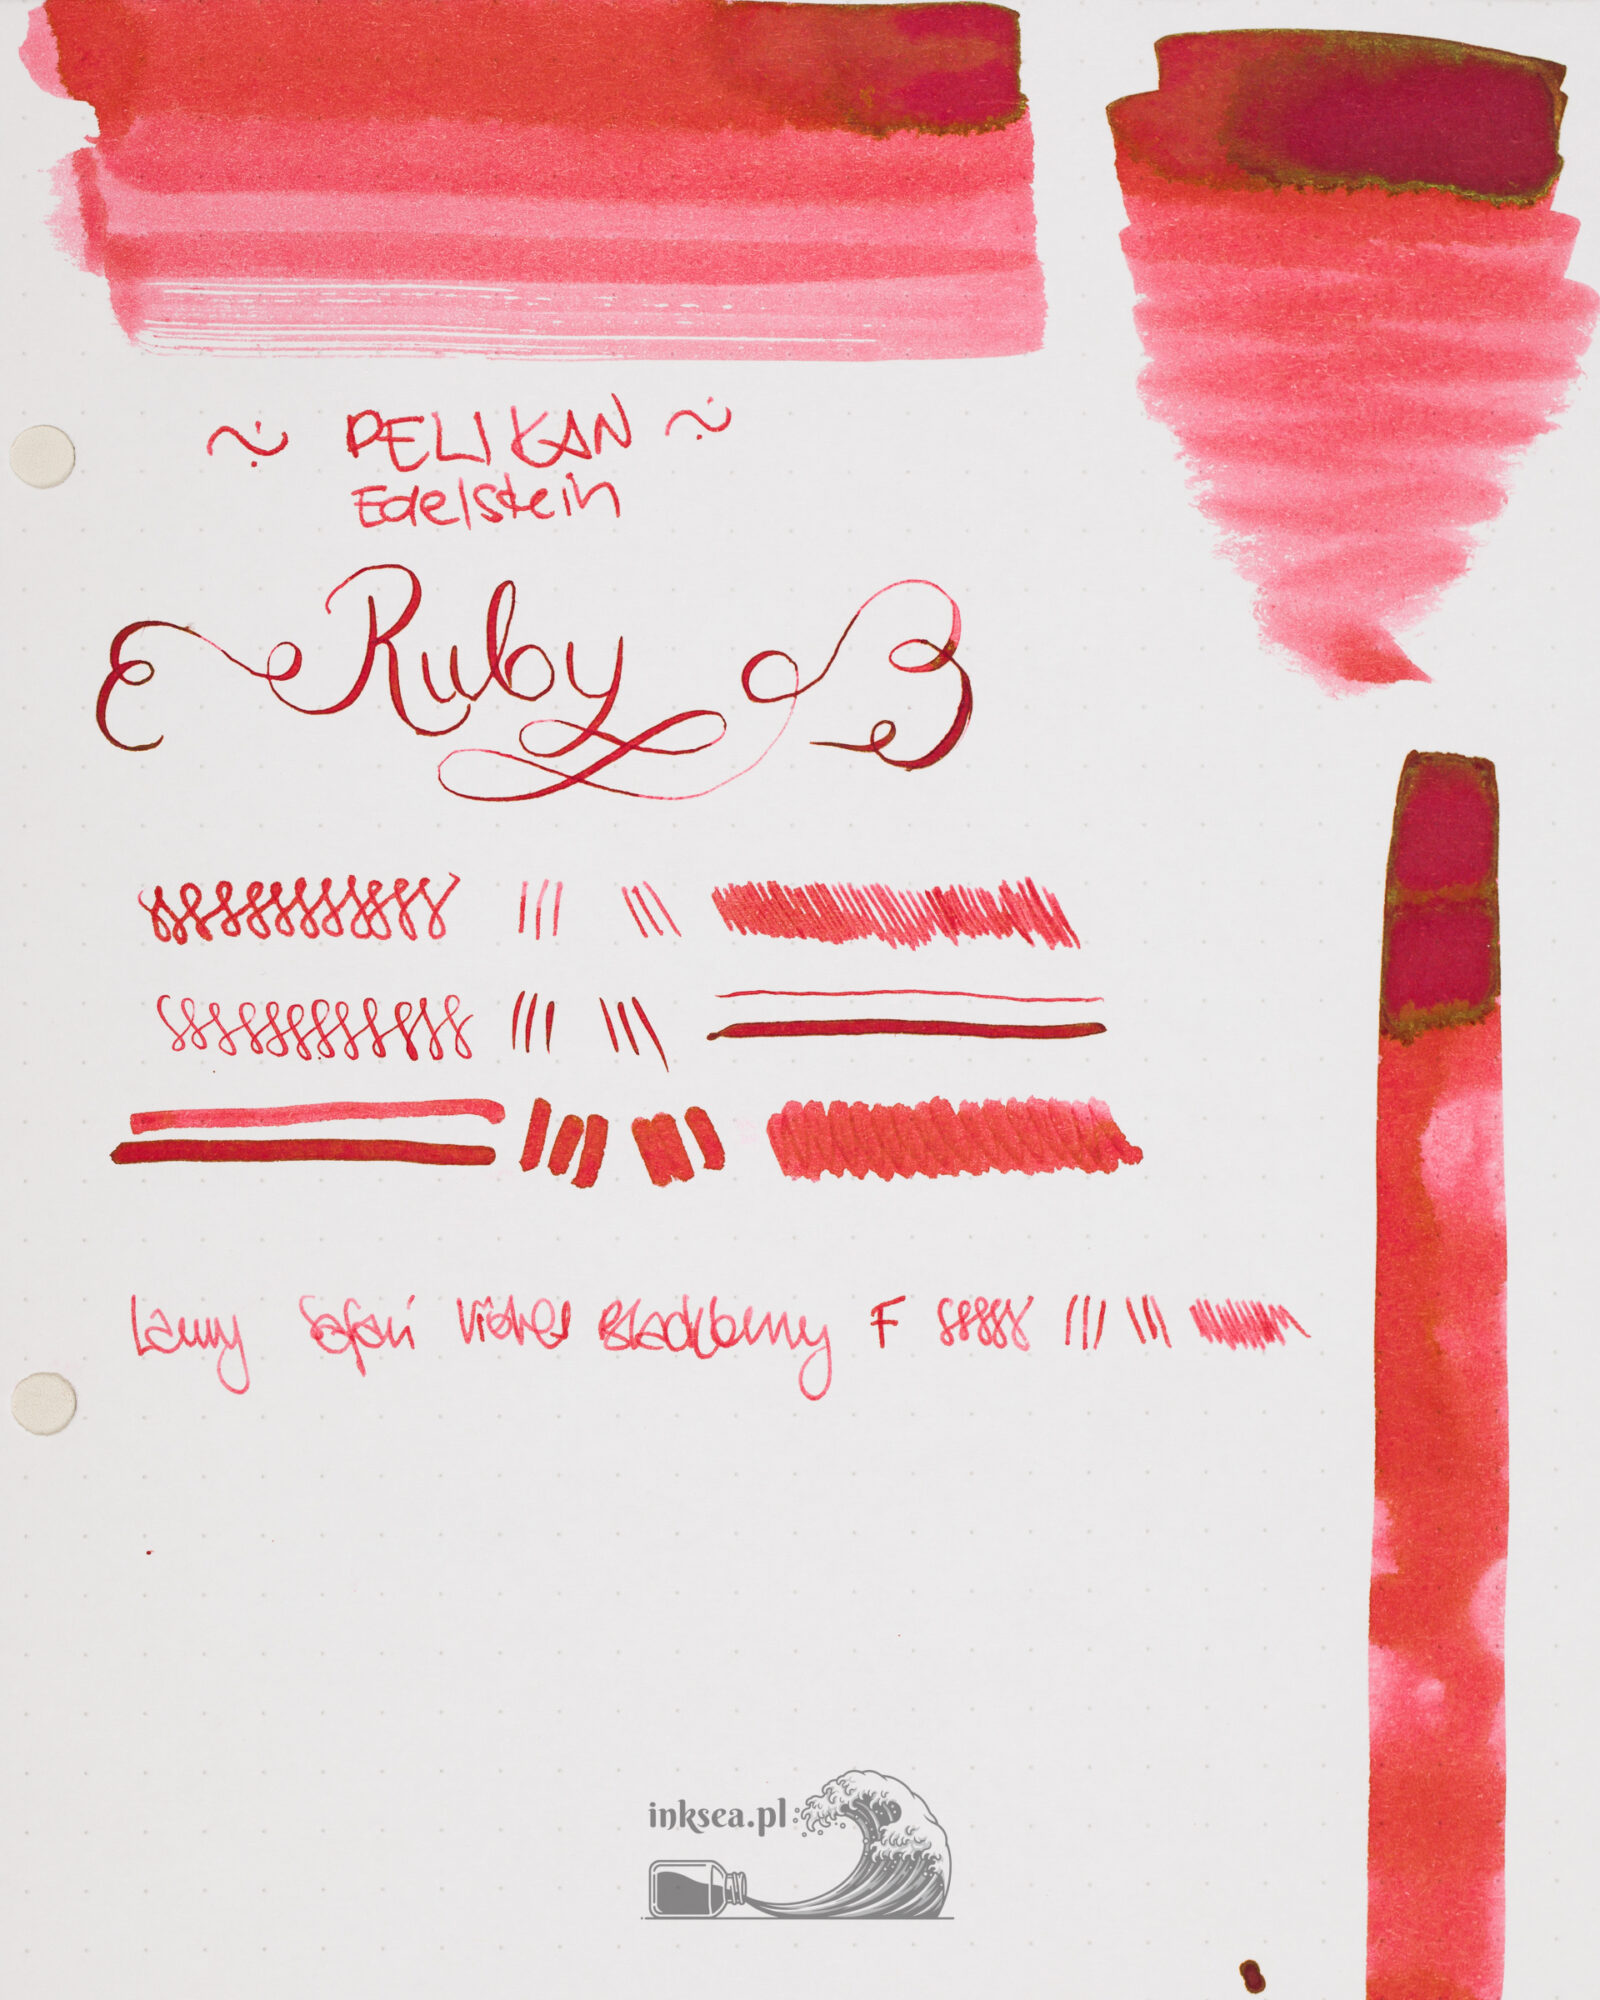 ~ PELIKAN ~
Edelstein
Ruby
Lamy Safari Violet Blackberry F
inksea.pl